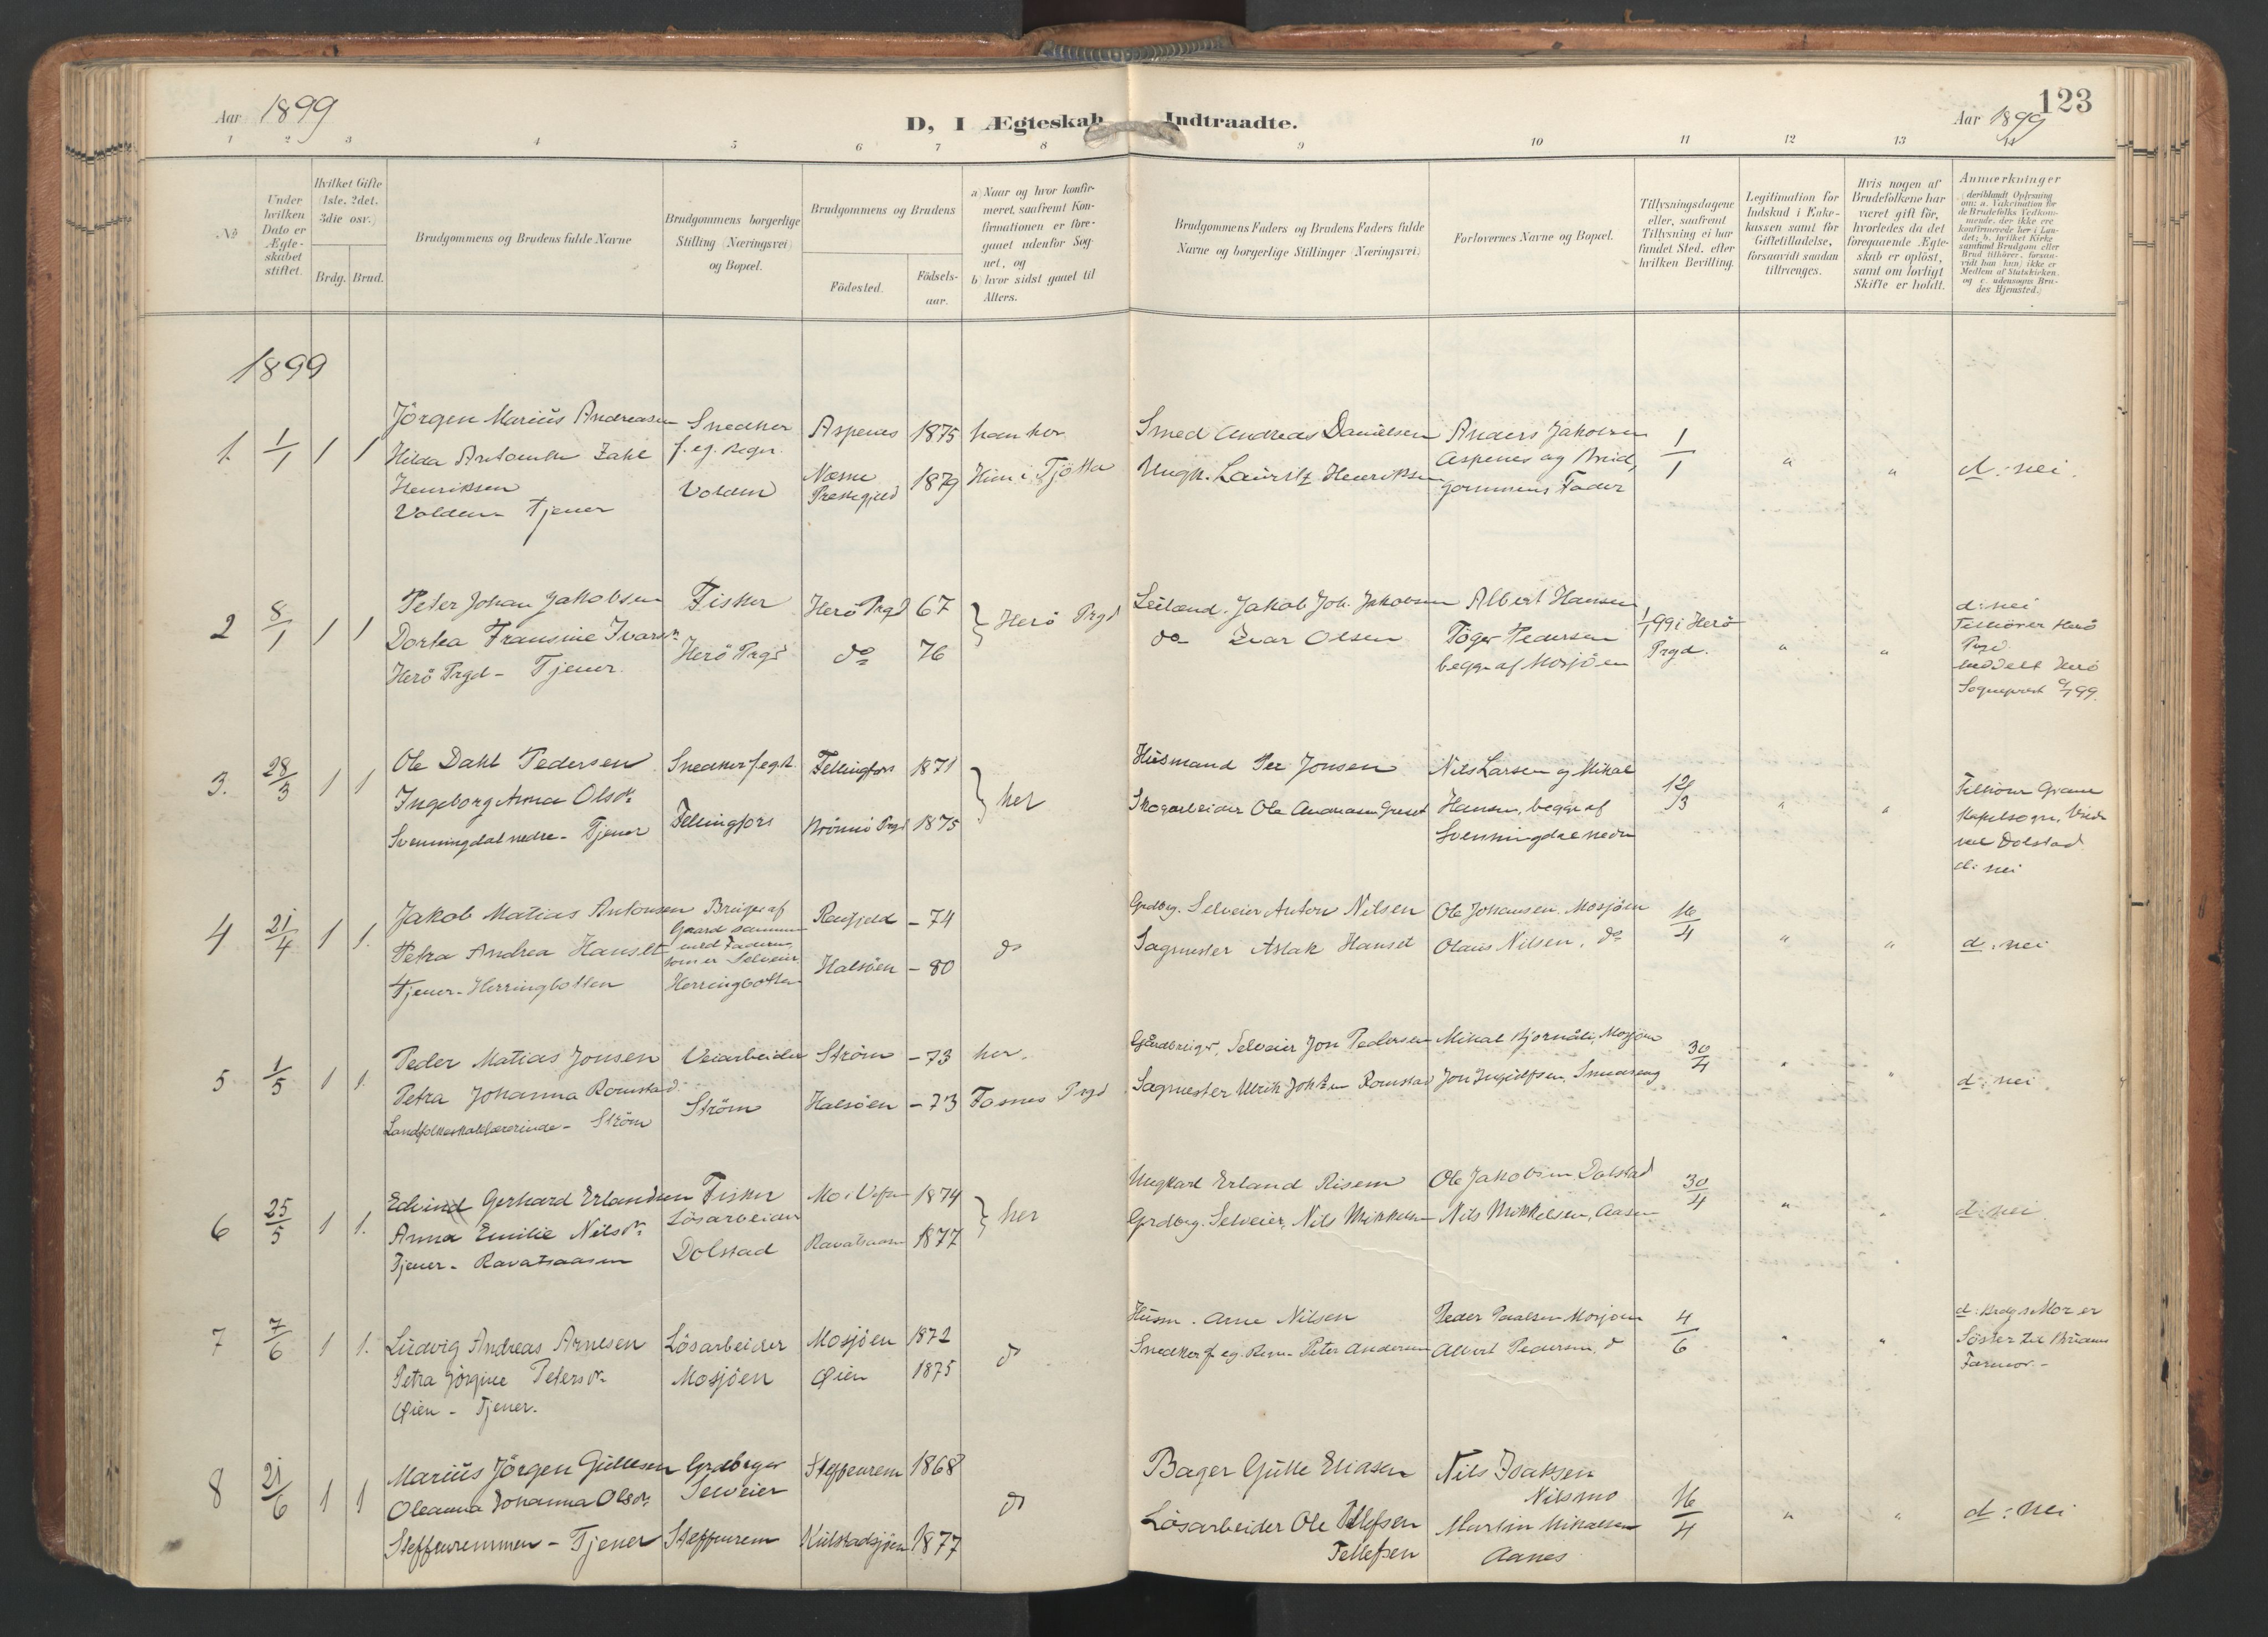 Aar 1899
D, I Ægteskab Indtraadte.
Aar 1899
123
1 2 3 4 5 6 7 8 9 10 11 12 13 14
No
Under hvilken Dato er Ægteskabet stiftet.
Hvilket Gifte (1ste, 2det, 3die osv.)
Brdg. Brud.
Brudgommens og Brudens fulde Navne
Brudgommens borgerlige Stilling (Næringsvei) og Bopæl.
Brudgommens og Brudens
Födested.
Födsels-
aar.
a) Naar og hvor konfir-
meret, saafremt Kon-
firmationen er fore-
gaaet udenfor Sog-
net, og
b) hvor sidst gaaet til
Alters.
Brudgommens Faders og Brudens Faders fulde
Navne og borgerlige Stillinger (Næringsvei)
Forlovernes Navne og Bopæl.
Tillysningsdagene
eller, saafremt
Tillysning ei har
fundet Sted, efter
hvilken Bevilling.
Legitimation for
Indskud i Enke-
kassen samt for
Giftetilladelse,
forsaavidt saadan
tiltrænges.
Hvis nogen af
Brudefolkene har
været gift för,
hvorledes da det
foregaaende Ægte-
skab er oplöst,
samt om lovligt
Skifte er holdt.
Anmærkninger
(deriblandt Oplysning
om: a. Vakcination for
de Brudefolks Vedkom-
mende, der ikke ere
konfirmerede her i Lan-
det; b. hvilket Kirke-
samfund Brudgom eller
Brud tilhörer, forsaa-
vidt han (hun) ikke er
Medlem af Statskirken,
og c. udensogns Bru-
des Hjemsted.)
1899
1. 1/1 1 1
Jörgen Marius Andreasen
Hilda Antonette Zahl
Henriksen
Volden Tjener
Snedker
f. eg. Regn.
Volden
Aspenes 1875
Næsne
Prestegjeld 1879
han her
Hun i Tjötta
Smed Andreas Danielsen
Ungk. Lauritz Henriksen
Anders Jakobsen
Aspenes og Brud
gommens Fader
1/1
" "
d: nei.
2 8/1 1 1
Peter Johan Jakobsen
Dorka Fransine Ivarsdr
Herö Prgd - Tjener.
Fisker
Herö Prgd
Herö Prgd 67
do 76
Herö Prgd
Leilænd. Jakob Joh. Jakobsen
do Ivar Olsen
Albert Hansen
Töger Pedersen
begge af Mosjöen
1/1 99 i Herö
Prgd.
" "
d: nei
Tilhörer Herö
Prgd.
meddelt Herö
Sogneprest 9/1 99.
3. 28/3 1 1
Ole Dahl Pedersen
Ingeborg Anna Olsdr
Svenningdal nedre - Tjener
Snedker f. eg. R.
Fellingfors
Fellingfors 1871
Brönnö Prgd 1875
her
Husmand Per Jonsen
Skogarbeider Ole Andreasen Grenet
Nils Larsen og Mikal
Hansen, begge af
Svenningdal nedre
12/3
" "
Tilhörer Grane
Kapelsogn, Viede
ved Dolstad
d: nei
4 21/4 1 1.
Jakob Matias Antonsen
Petra Andrea Hanset
Tjener - Herringbotten
Bruger af
Gaard sammen
med Faderen,
som er Selveier
Herringbotten
Renfjeld - 74
Halsöen - 80
do
Grdbrg. Selveier Anton Nilsen
Sagmester Aslak Hanset
Ole Johansen, Mosjöen
Olaus Nilsen, do
16/4
" "
d: nei
5 1/5 1 1.
Peder Matias Jonsen
Petra Johanna Romstad
Landfolkeskolelærerinde - Ström
Veiarbeider
Ström
Ström - 73
Halsöen - 73
her.
Fosnes Prgd
Gårdbruger, Selveier Jon Pedersen
Sagmester Ulrik Johsen Romstad
Mikal Bjornåli, Mosjöen
Jon Ingielfsen, Smedseng
30/4
" "
d: nei
6 25/5 1 1.
Edvind Gerhard Erlandsen
Anna Emilie Nilsdr
Tjener - Ravatsaasen
Fisker
Lösarbeider
Dolstad
Mo i Vefsn 1874
Ravatsaasen 1877
her
Ungkarl Erland Risem
Grdbrg. Selveier, Nils Mikkelsen
Ole Jakobsen Dolstad
Nils Mikkelsen, Aasen
30/4
" "
d: nei
7 7/6 1 1.
Ludvig Andreas Arnesen
Petra Jörgine Petersdr
Øien - Tjener.
Lösarbeider
Mosjöen
Mosjöen 1872
Øien 1875
do
Husm. Arne Nilsen
Snedker f. eg. Regn. Peter Andersen
Peder Paalsen Mosjöen
Albert Pedersen, do
4/6
" "
d: Brdgs Mor er
Söster til Brudens
Farmor. -
8 21/6 1 1
Marius Jörgen Gullesen
Oleanna Johanna Olsdr
Steffenremmen - Tjener
Grdbruger
Selveier
Steffenrem
Steffenrem 1868
Kulstadsjöen 1877
do
Bager Gulle Eliasen
Lösarbeider Ole Tellefsen
Tellefsen
Nils Isaksen
Nilsmo
Martin Mikalsen
Aanes
16/4
" "
d: nei